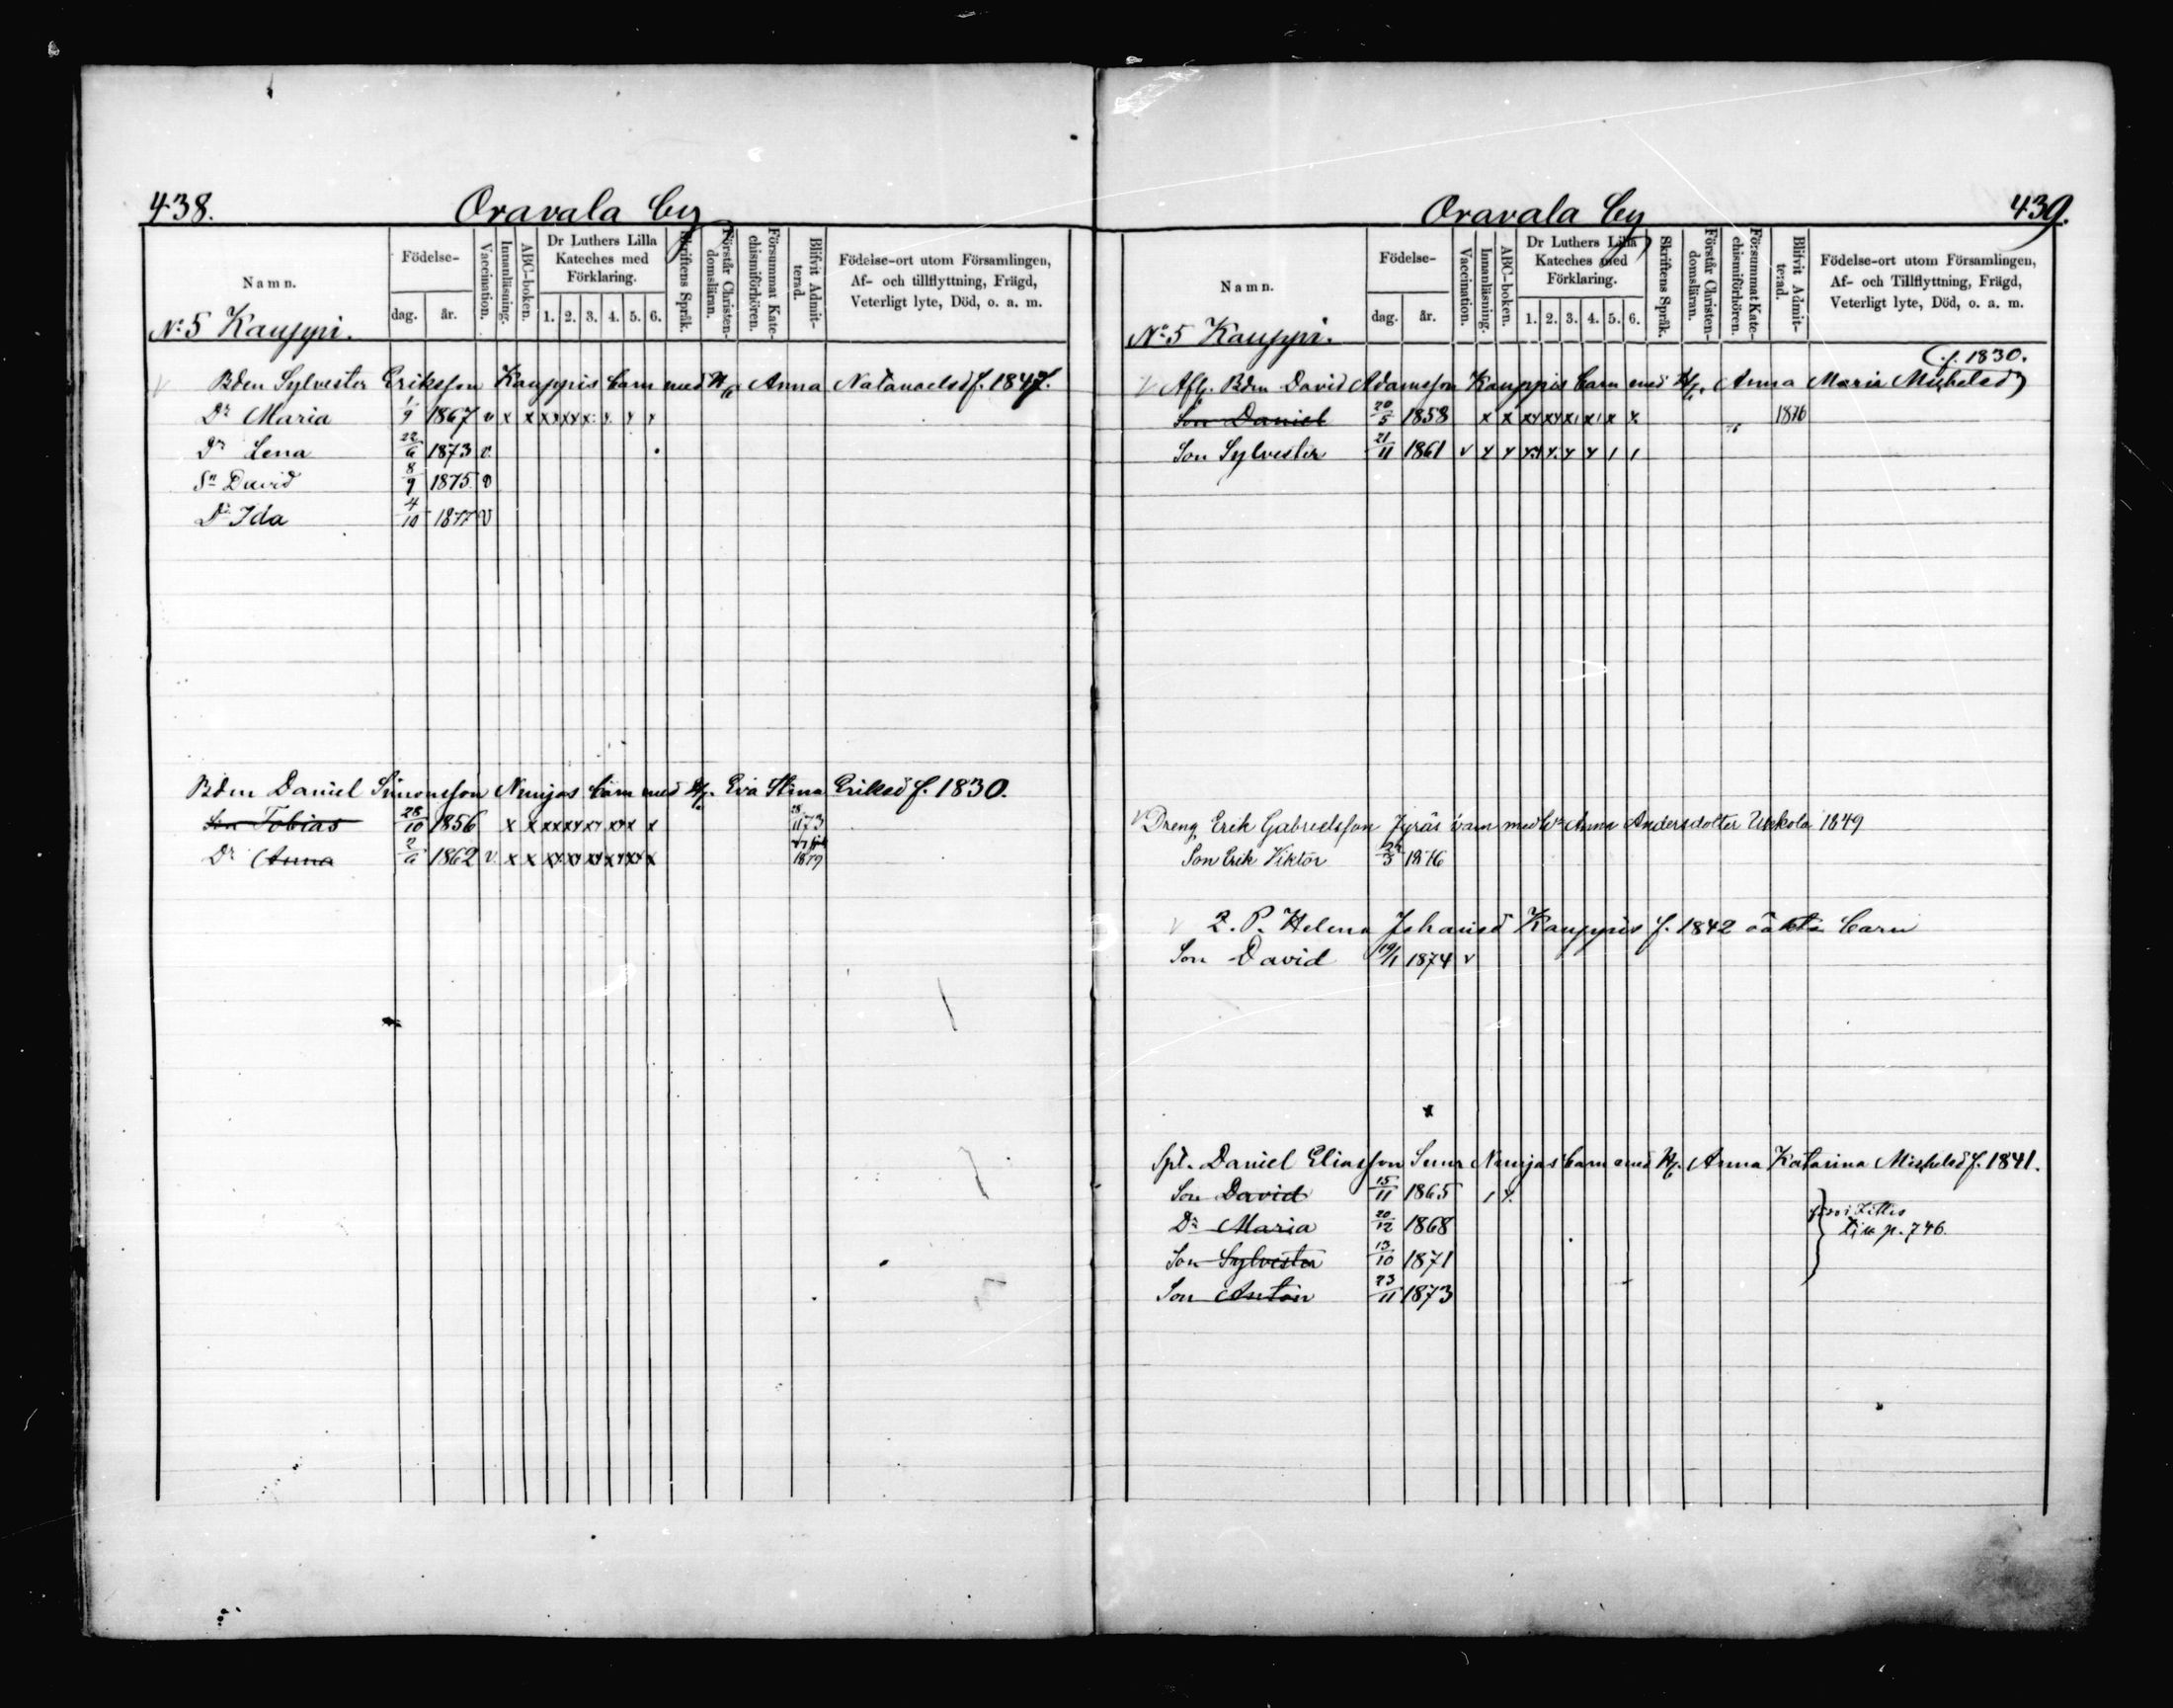 438.
Oravala by
Namn.
Födelse-
dag.
år.
Vaccination.
Innanläsning.
ABC-boken.
Dr Luthers Lilla
Kateches med
Förklaring.
1. 2. 3. 4. 5. 6.
Skriftens Språk.
Förstår Christen-
domsläran.
Försummat Kate-
chismiförhören.
Blifvit Admit-
terad.
Födelse-ort utom Församlingen,
Af- och tillflyttning, Frägd,
Veterligt lyte, Död, o. a. m.
No 5 Kauppi.
Bden Sylvester Eriksson Kauppis barn med H/a Anna Natanaelsd f. 1847.
Dr Maria 1/9 1867 v x x x x x x x
Dr Lena 22/6 1873 v
Sn David 8/9 1875 v
Dr Ida 4/10 1877 v
Bdm Daniel Simonsson Nunjas barn med H/. Eva Stina Eriksd f. 1830.
Son Tobias 28/10 1856 x x xx xx xx xx x
Dr Anna 2/6 1862 v x x xx xx xx xx x 1879
439.
Oravala by
Namn.
Födelse-
dag.
år.
Vaccination.
Innanläsning.
ABC-boken.
Dr Luthers Lilla
Kateches med
Förklaring.
1. 2. 3. 4. 5. 6.
Skriftens Språk.
Förstår Christen-
domsläran.
Försummat Kate-
chismiförhören.
Blifvit Admit-
terad.
Födelse-ort utom Församlingen,
Af- och Tillflyttning, Frägd,
Veterligt lyte, Död, o. a. m.
No 5 Kauppi.
f. 1830.
v Afl. Bdm David Adamsson Kauppis barn med H/. Anna Maria Michelsd
Son Daniel 20/5 1858 x x x x x x x x 1876
Son Sylvester 21/11 1861 v
v Dreng Erik Gabrielsson Jyräs barn med Hu Anna Andersdotter Ukkola 1849
Son Erik Viktor 1876
v Q. P. Helena Johansd Kauppis f. 1842 oäkta barn
Son David 19/1 1874 v
Spt. Daniel Eliasson Nunjas barn med H/. Anna Katarina Michelsd f. 1841.
Son David 15/11 1865
Dr Maria 20/12 1868
p. 746.
Son Sylvester 13/10 1871
Son Anton 23/11 1873